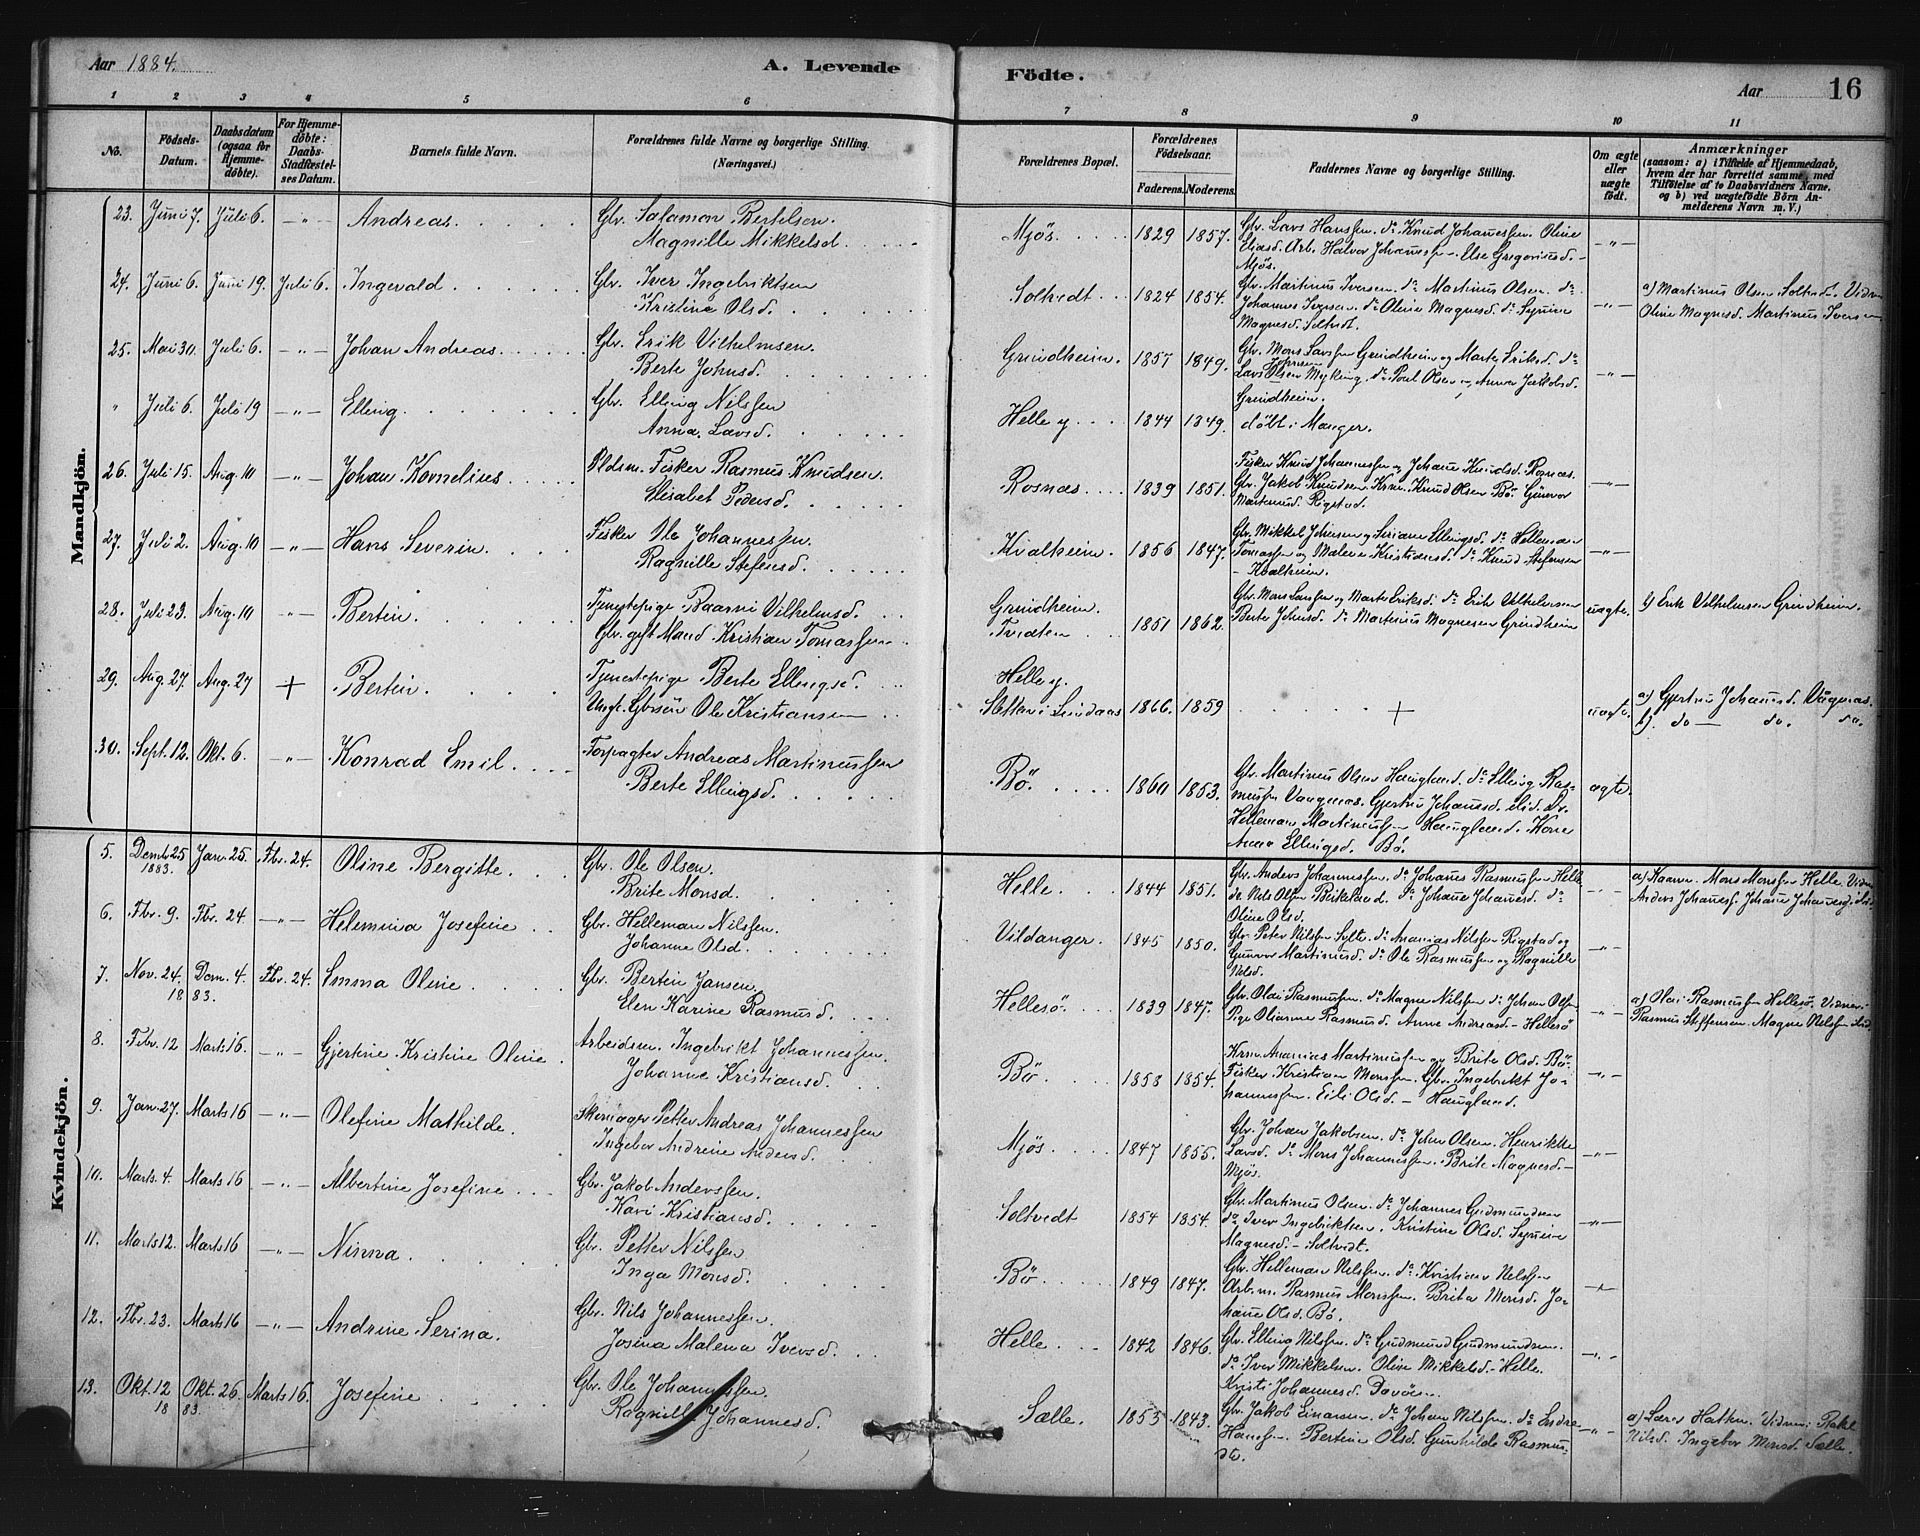 Aar 1884.
A. Levende Födte.
Aar
16
1 2 3 4 5 6 7 8 9 10 11
No.
Födsels-Datum.
Daabsdatum (ogsaa for Hjemmedöbte).
For Hjemmedöbte: Daabs-Stadfæstelses Datum.
Barnets fulde Navn.
Forældrenes fulde Navne og borgerlige Stilling. (Næringsvei.)
Forældrenes Bopæl.
Forældrenes Födselsaar.
Faderens. Moderens.
Faddernes Navne og borgerlige Stilling.
Om ægte eller uægte födt.
Anmærkninger (saasom: a) i Tilfælde af Hjemmedaab, hvem der har forrettet samme, med Tilföielse af to Daabsvidners Navne, og b) ved uægtefödte Börn Anmelderens Navn m. V.)
Mandkjön.
23. Juni 7. Juli 6. -"- Andreas. Gbr. Salamon Bertelsen
Magnille Mikkelsd.
Mjøs. 1829 1857. Gbr. Lars Hansen. do Knud Johannessen. Oline
Eliasd. Arb. Halvor Johannessen. Else Gregoriusd. -
Mjøs.
24. Juni 6. Juni 19. Juli 6. Ingevald Gbr. Iver Ingebriktsen
Kristine Olsd.
Soltvedt 1824 1854. Gbr. Martinus Iversen. do Martinus Olsen. do
Johannes Iversen. do Oline Magnesd. do Synneve
Magnesd. Soltvdt.
a) Martinus Olsen Soltvdt. Vidn
Oline Magnesd. Martinus Iversen
25. Mai 30. Juli 6. -"- Johan Andreas. Gbr. Erik Vilhelmsen.
Berte Johnsd.
Grindheim. 1857 1849. Gbr. Mons Larssen Grindheim og Marte Eriksd. do
Lars Olsen Myking. do Poul Olsen og Anna Jakobsd.
Grindheim.
" Juli 6. Juli 19 -"- Elling. Gbr. Elling Nilssen
Anna Larsd.
Helle y. 1844 1849. döbt i Manger.
26. Juli 15. Aug. 10 -"- Johan Kornelius. Pldsm. Fisker Rasmus Knudsen
Elisabet Pedersd.
Rosnæs. 1839 1851. Fisker Knud Johannessen og Johane Knudsd. Rosnæs.
Gbr. Jakob Knudsen. Krm. Knud Olsen Bø. Gunvor
Martinusd. Rigstad.
27. Juli 2. Aug. 10 -"- Hans Severin. Fisker Ole Johannessen.
Ragnille Stefensd.
Kvalheim. 1856 1847. Gbr. Mikkel Johnsen og Siriane Ellingsd. do Helleman
Tomassen og Malene Kristiansd. do Knud Stefensen
- Kvalheim.
28. Juli 23. Aug. 10 -"- Bertin. Tjenestepige Baarni Vilhelmsd.
Gbr. gift Mand Kristian Tomassen
Grindheim. Tveiten 1851 1862. Gbr. Mons Larssen og Marte Eriksd. do Erik Vilhelmsen
Berte Johnsd. do Martinus Magnesen Grindheim
uægte. b) Erik Vilhelmsen Grindheim.
29. Aug. 27. Aug. 27 + Bertin. Tjenestepige Berte Ellingsd.
Ungk. Gbrsøn Ole Kristiansen
Helle y. Sletten i Lindaas 1866. 1859 + uægte. a) Gjertru Johannesd. Vågenæs.
b). do — do. do.
30. Sept. 12. Okt. 6. -"- Konrad Emil. Forpagter Andreas Martinussen
Berte Ellingsd.
Bö. 1860 1853. Gbr. Martinus Olsen Haugland. do Elling Ras-
mussen Vaagenæs. Gjertru Johannesd. ibid. Dr.
Helleman Martinussen Haugland. Kone
Anna Ellingsd. Bø.
ægte.
Kvindekjön.
5. Decmb 25 1883. Jan. 25. Fbr. 24. Oline Bergitte. Gbr. Ole Olsen.
Brite Monsd.
Helle. 1844 1851. Gbr. Anders Johannessen. do Johannes Rasmussen Helle
do Nils Olsen Birkeland. do Johane Johanesd. do
Oline Olsd.
a) Kaaren Mons Monssen Helle. Vidn
Anders Johaness. Johane Johanesd. ibid
6. Fbr. 9. Fbr. 24 -"- Helemina Josefine. Gbr. Helleman Nilssen.
Johanne Olsd.
Vildanger. 1845 1850. Gbr. Peter Nilssen Sylte. do Ananias Nilssen Rigstad og
Gunvor Martinusd. do Ole Rasmussen og Ragnille
Nilsd.
7. Nov. 24. Decm. 4. 1883. Fbr. 24. Emma Oline. Gbr. Bertin Jansen.
Elen Karine Rasmusd.
Hellesö. 1839 1847. Gbr. Olai Rasmussen. do Magne Nilssen. do Johan Olsen
Pige Oliane Rasmusd. Anne Andreasd - Hellesö
a) Olai Rasmussen Hellesö. Vidner:
Rasmus Steffensen. Magne Nilssen ibid
8. Febr. 12 Marts 16. -"- Gjertine Kristine Oline. Arbeidsm. Ingebrikt Johannessen.
Johanne Kristiansd.
Bö. 1858 1854. Krm. Ananias Martinussen og Brite Olsd. Bö.
Fisker Kristian Monssen. Gbr. Ingebrikt Jo-
hannessen. Eili Olsd. - Haugland.
9. Jan. 27. Marts 16 -"- Olefine Mathilde. Skomager Petter Andreas Johannessen
Ingebor Andreine Andersd.
Mjøs. 1847 1855. Gbr. Johan Jakobsen. do John Olsen. Henrikke
Larsd. do Mons Johannessen. Brite Magnesd. -
Mjøs.
10. Marts. 4. Marts 16 -"- Albertine Josefine. Gbr. Jakob Anderssen.
Kari Kristiansd.
Soltvedt 1854 1854. Gbr. Martinus Olsen. do Johannes Gudmundsen
do Iver Ingebriktsen. Kristine Olsd. Synneve
Magnesd. - Soltvedt.
11. Marts 12. Marts 16 -"- Ninna. Gbr. Petter Nilssen
Inga Monsd.
Bö. 1849 1847. Gbr. Helleman Nilssen. do Kristian Nilssen
Arb.m. Rasmus Monssen. Brita Monsd. Jo-
hanne Olsd. Bö.
12. Fbr. 23. Marts 16 -"- Andrine Serina. Gbr. Nils Johannessen.
Josina Malena Iversd.
Helle. 1842 1846. Gbr. Elling Nilssen. do Gudmund Gudmundsen.
do Iver Mikkelsen. Oline Mikkelsd. Helle.
Kristi Johannesd.
13. Okt. 12 Okt. 26. 1883. Marts 16. Josefine. Gbr. Ole Johannessen.
Ragnille Johannesd.
Sælle. 1853 1843. Gbr. Jakob Einarsen. do Johan Nilssen. do Endre
Hanssen. Bertine Olsd. Gunhilde Rasmus-
da.
a) Lærer Vidner: Rakel
Nilsd. Ingebor Monsd. Sælle.